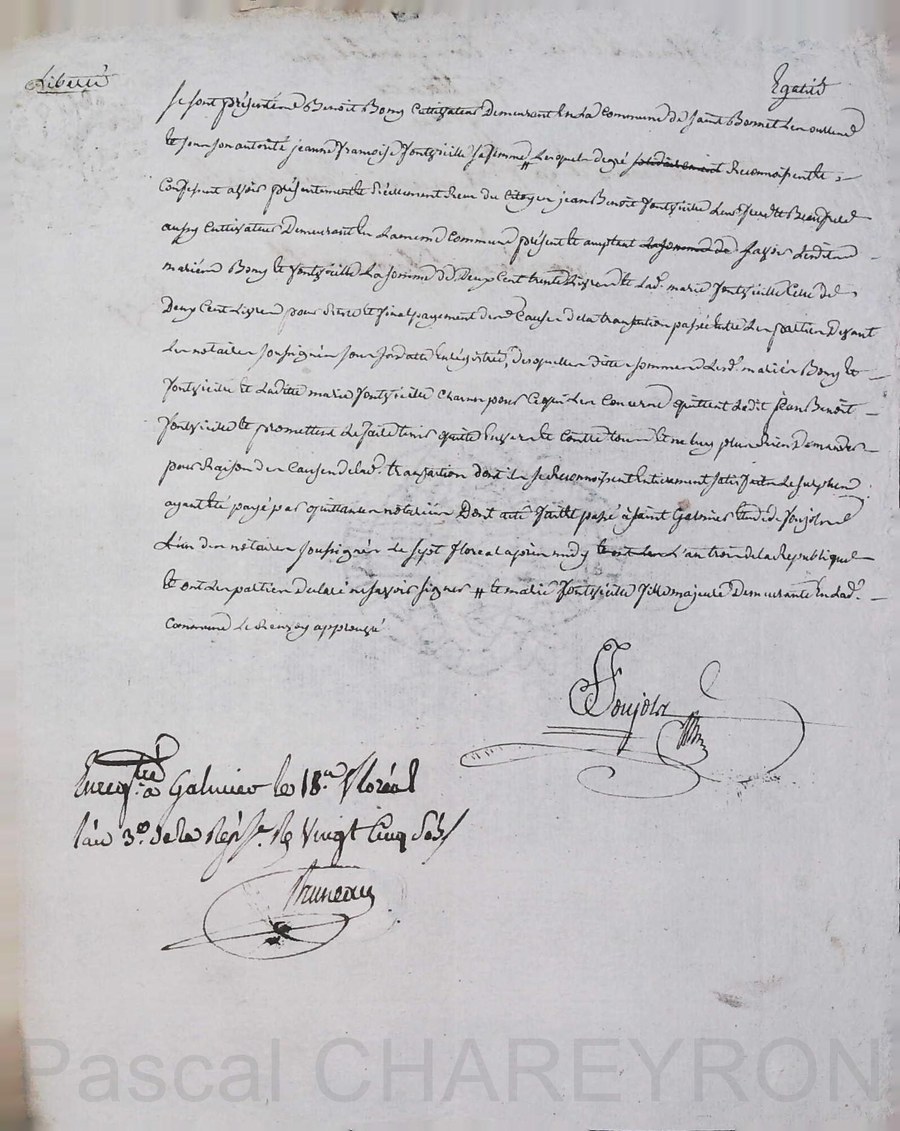 Liberté Egalité
se sont présentés Benoit Bony Cultivateur Demeurant En La Commune de Saint Bonnet Les oulles
Et sous son autorité jeanne Francoise Fontvieille sa femme # Lesquels de gré solidairement Reconnoissent et
Confessent avoir présentement et Réellement Recu du Citoyen jean Benoit Fontvieille Leur frere et Beaufrere
aussy Cultivateur Demeurant En La meme Commune présent et acceptant La somme de savoir Lesdits
mariés Bony et Fontvieille La somme de Deux Cent trente Livres et Lad. marie Fontvieille Celle de
Deux Cent Livres pour Reste et final payement des Causes de la transaction passée Entre Les parties Devant
Les notaires soussignés jour sa datte Enregistrée, desquelles dites sommes Lesd. mariés Bony et
Fontvieille et Laditte marie Fontvieille Chacun pour Ce qui Les Concerne quittent Ledit jean Benoit
Fontvieille et promettent Le faire tenir quitte Envers et Contre tous et ne luy plus Rien Demander
pour Raison des Causes de lad. transaction dont ils se Reconnoissent Entierement satisfaits Le surplus
ayant été payé par quittances notariées Dont acte Fait et passé à Saint Galmier Etude de Jonjolz
L'un des notaires soussignés Le sept floreal après midy L'an trois de la Republique
et ont Les parties declaré ne savoir signer # et marie Fontvieille fille majeure Demeurante En Lad.
Commune Le Renvoy approuvé
Jonjolz
Enregtré à Galmier le 18. floréal
l'an 3e. de la Répque. Re vingt Cinq sols
Bruneau
Pascal CHAREYRON